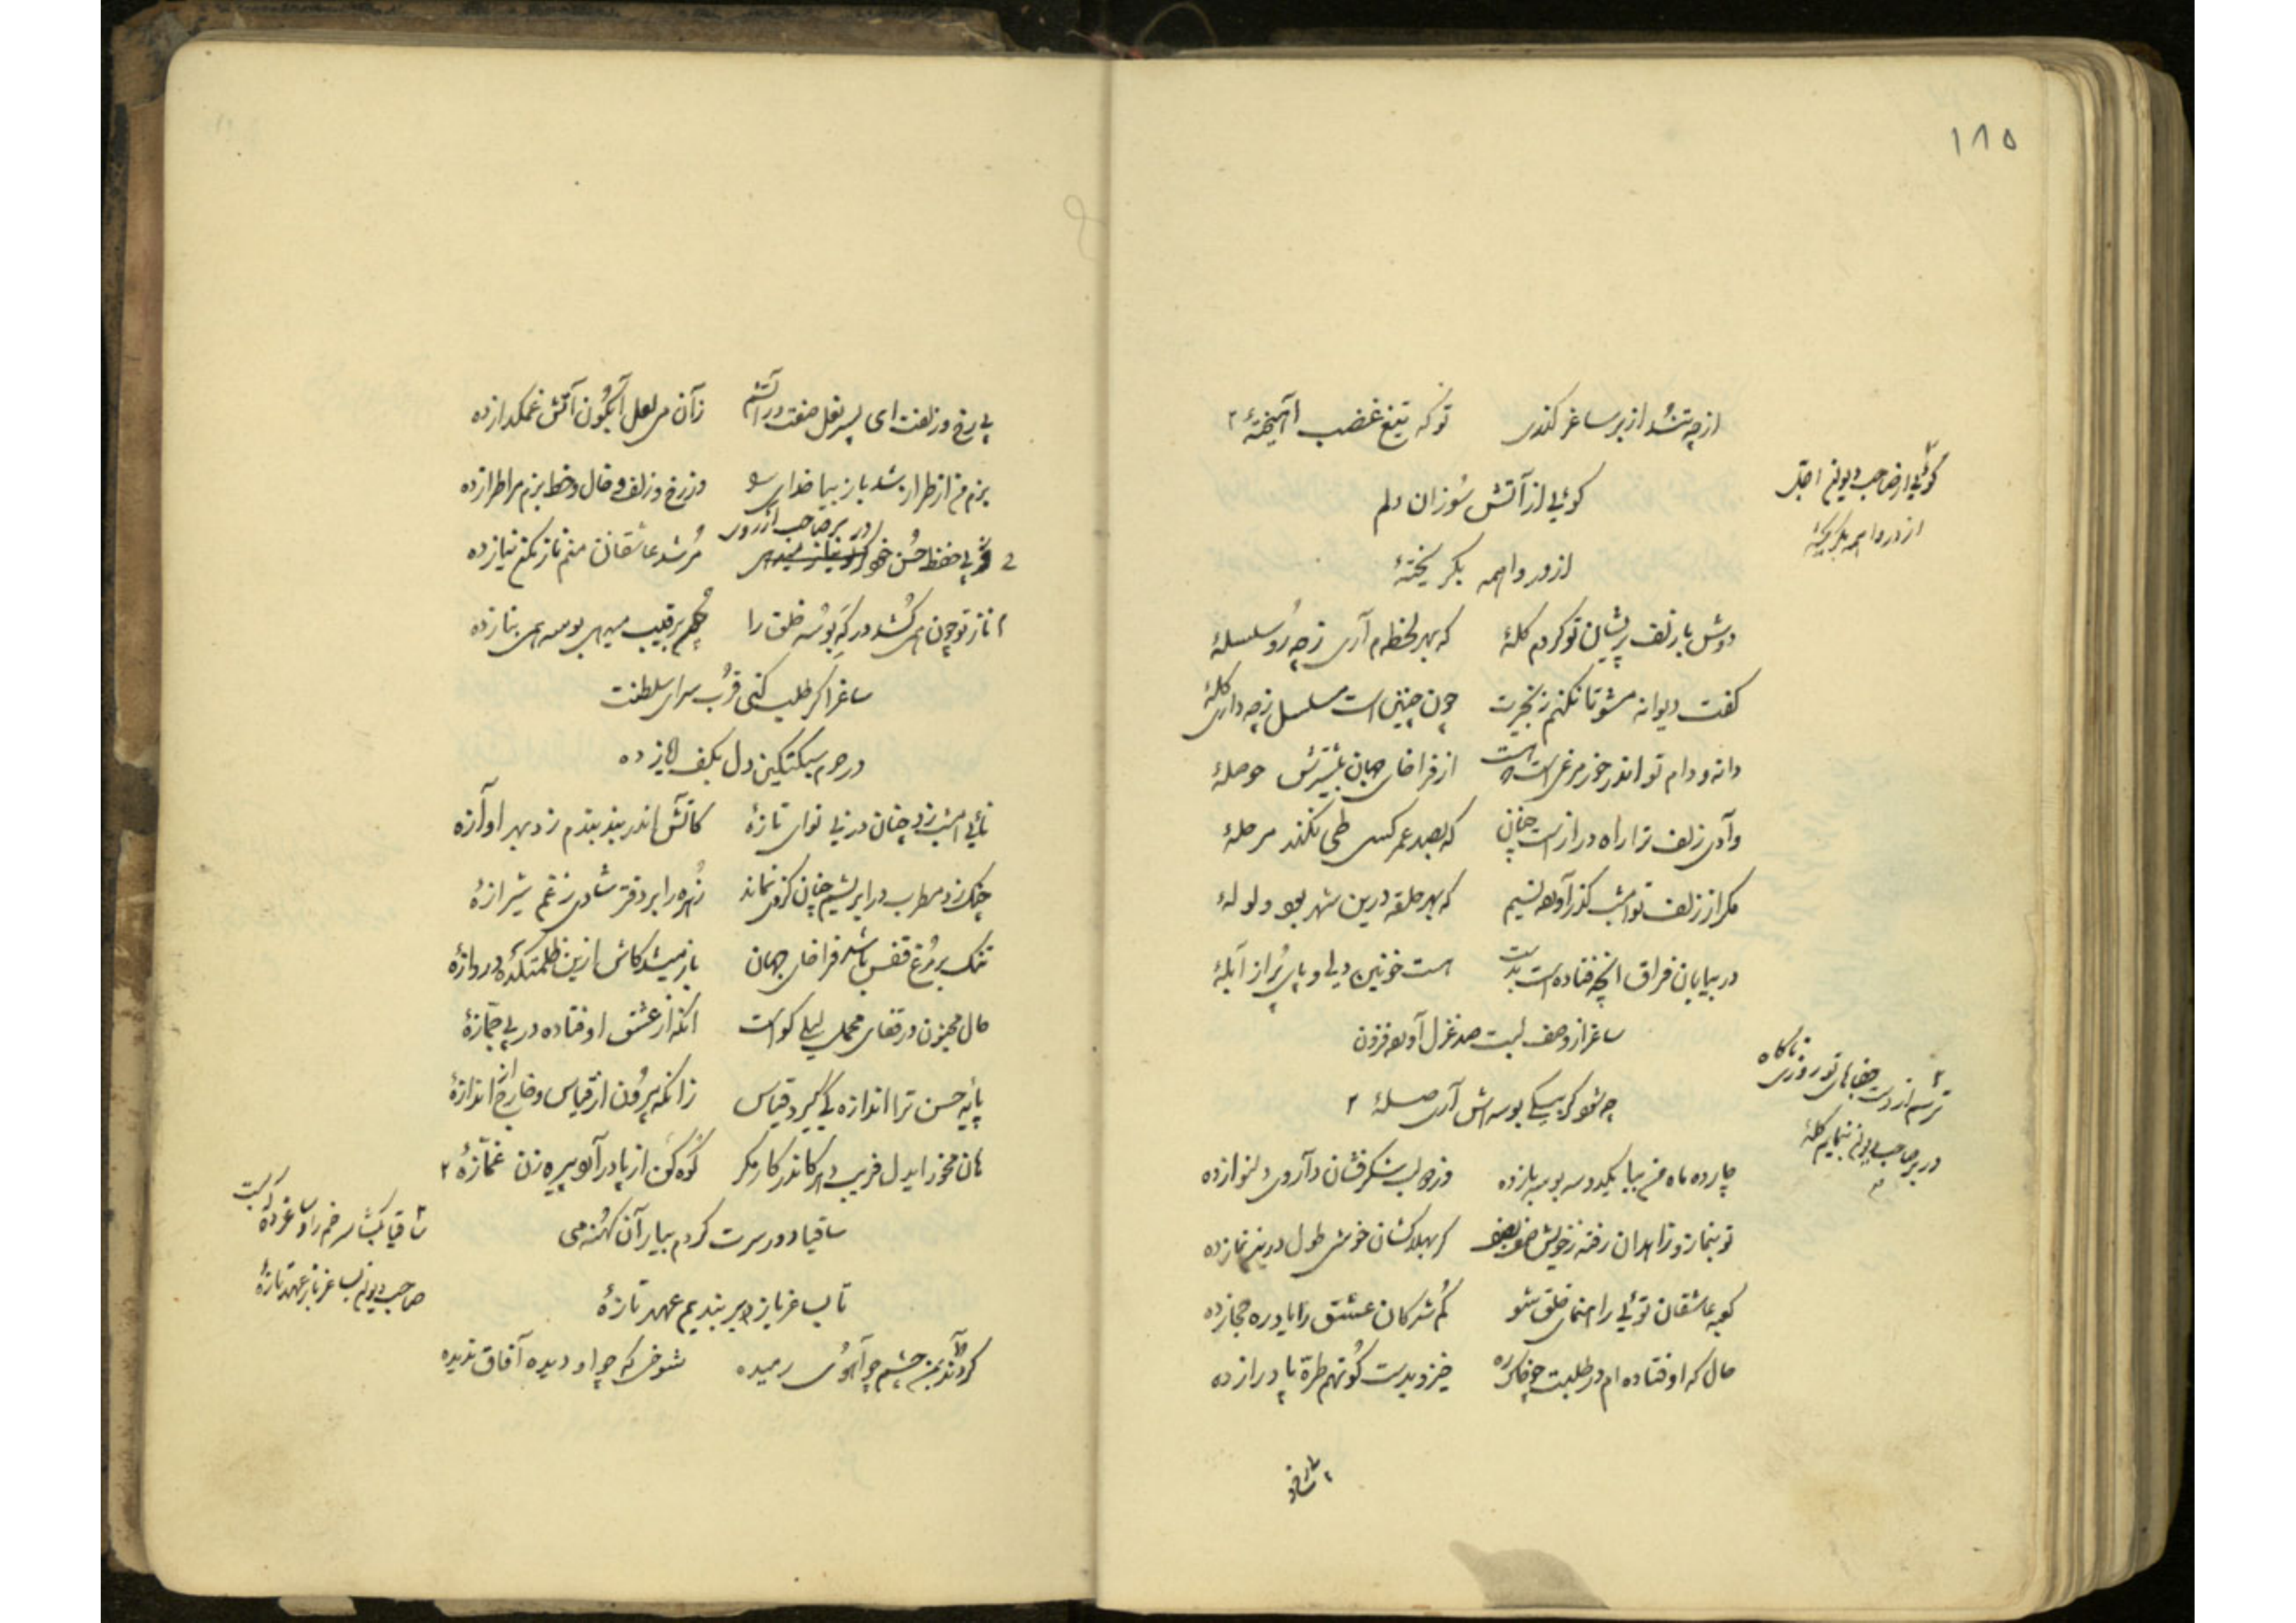 ۱۸۵
از چه تند شد از بر ساغر کندی توکه تیغ غضب آهیخته ۲
گوئی از آتش سوزان دلم
از در واهمه بگریخته
۲ گوئی از صاحب دیوانم اجل
از در واهمه بگریخته
دوش با زلف پریشان تو کردم گله که بهر لحظه‌ام آری ز چه رو سلسله
گفت دیوانه مشو تا نکنم زنجیرت چون چنین است مسلسل ز چه داری گله
دانه و دام تو اندر خور مرغی است که هست از فراخای جهان بیشترش حوصله
وادی زلف ترا راه درازست چنان که بصد عمر کسی طی نکند مرحله
مگر از زلف تو امشب گذر آورده نسیم که بهر حلقه درین شهر بود ولوله
در بیابان فراق آنچه فتاده است بدست هست خونین دلی و پای پر از آبله
ساغر از وصف لبت صد غزل آورده فزون
چه شود گر بیکی بوسه‌اش آری صله ۲
۲ ترسم از دست جفاهای تو روزی ناگاه
در بر صاحب دیوان بنمایم گله
چارده ماه من بیا یکدو سه بوسه باز ده وز دو لب شکرفشان داروی دلنواز ده
تو بنماز و زاهدان رفته ز خویش صف بصف گر بهلاکشان خوشی طول درین نماز ده
کعبه عاشقان توئی راهنمای خلق شو گم شدگان عشق را یاد ره حجاز ده
حال که اوفتاده‌ام در طلبت چو خاک ره خیز و بدست کوتهم طره پا دراز ده
بی رخ و زلفت ای پسر نعل صفت در آتشم زان می لعل آبگون آتش غمگداز ده
بزم من از طراز شد باز بیا خدای را وز رخ و زلف و خال و خط بزم مرا طراز ده
از پی حفظ حسن خود در بر صاحب آر روی مرشد عاشقان منم ناز مکن نیاز ده
ناز تو چون همی کشد در گه بوسه خلق را حکم برقیب میدهی بوسه همی بناز ده
ساغر اگر طلب کنی قرب سرای سلطنت
در حرم سبکتکین دل بکف ایاز ده
نائی امشب زد چنان در نی نوای تازه کاتش اندر بند بندم زد بهر آوازه
چنگ زد مطرب در ابریشم چنان کز وی نماند زهره را بر دفتر شادی ز غم شیرازه
تنگ بر مرغ قفس باشد فراخای جهان باز میشد کاش ازین ظلمتکده دروازه
حال مجنون در قفای محمل لیلی کو است آنکه از عشق اوفتاده در پی جمازه
پایه حسن ترا اندازه کی گیرد قیاس زانکه بیرون از قیاس و خارج از اندازه
هان مخور ایدل فریب دهر کاندر کار مکر کوه کن از پا درآورد پیره زن غمازه ۲
ساقیا دور سرت گردم بیار آن کهنه می
تا بساغر باز بر بندیم عهد تازه
۲ ساقیا بگشا سر خم را و ساغر ده که بست
صاحب دیوان بساغر باز عهد تازه
کردند بمن چشم چو آهوی رمیده شوخی که چو او دیده آفاق ندیده